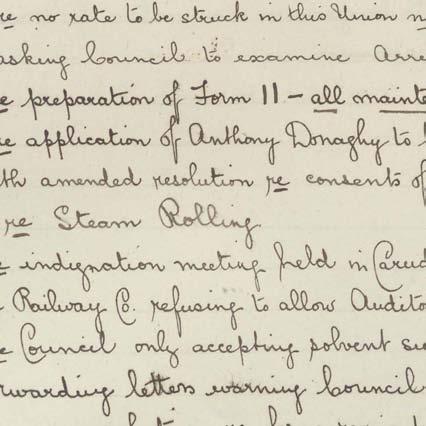 re no rate to be struck in this Union
asking Council to examine Arre
re preparation of Form 11 - all mainte
re application of Anthony Donaghy to
th amended resolution re consents of
re Steam Rolling
indignation meeting held in Carud
Railway Co. refusing to allow Audito
Council only accepting solvent su
rwarding letters warning Council